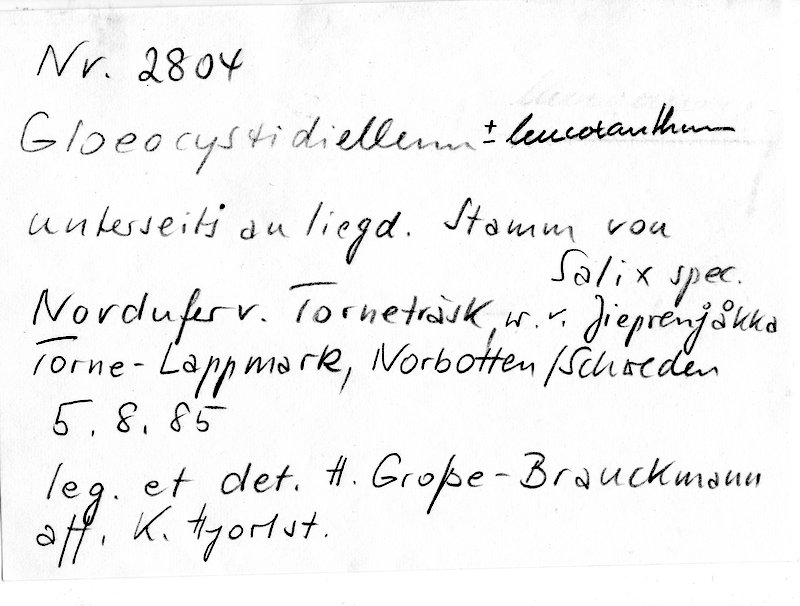 Nr. 2804
Gloeocystidiellum ± leucoxanthum
unterseits an liegd. Stamm von
Salix spec.
Nordufer v. Torneträsk, w. v. Jieprenjåkka
Torne-Lappmark, Norbotten/Schweden
5. 8. 85
leg. et det. H. Große-Brauckmann
aff. K. Hjortst.